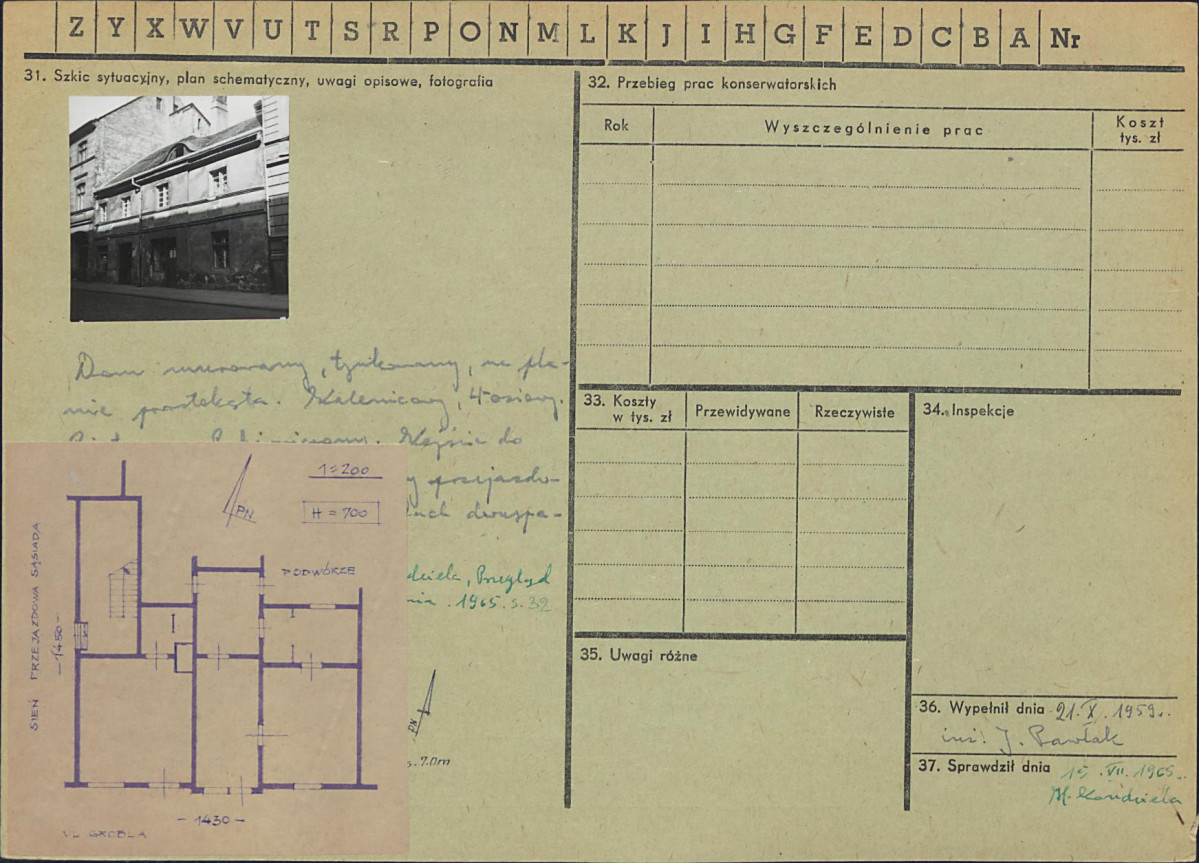 Z Y X W V U T S R P O N M L K J I H G F E D C B A Nr
31. Szkic sytuacyjny, plan schematyczny, uwagi opisowe, fotografia
Dom murowany, tynkowany, na pla-
nie prostokąta. Kalenicowy, 4-osiowy.
Wejście do
przejazdo-
dwuspa-
dziela, Przegląd
nia. 1965. s. 32
PN
s. 7.0m
1=200
H = 700
PN
PODWÓRZE
SIEŃ PRZEJAZDOWA SĄSIADA
-1480-
-1430-
UL GROBLA
32. Przebieg prac konserwatorskich
Rok
Wyszczególnienie prac
Koszt
tys. zł
33. Koszty
w tys. zł
Przewidywane
Rzeczywiste
34. Inspekcje
35. Uwagi różne
36. Wypełnił dnia 21.X.1959r.
inż. J. Pawlak
37. Sprawdził dnia 15.VII.1965r.
M. Kondziela